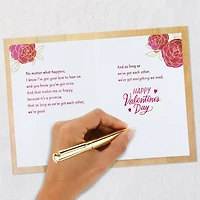 No matter what happens,
I know I've got your love to lean on
and you know you've got mine.
And that makes me so happy,
because it's a promise
that as long as we've got each other,
we're good.
And as long as
we've got each other,
we've got everything we need.
HAPPY
Valentine's
Day